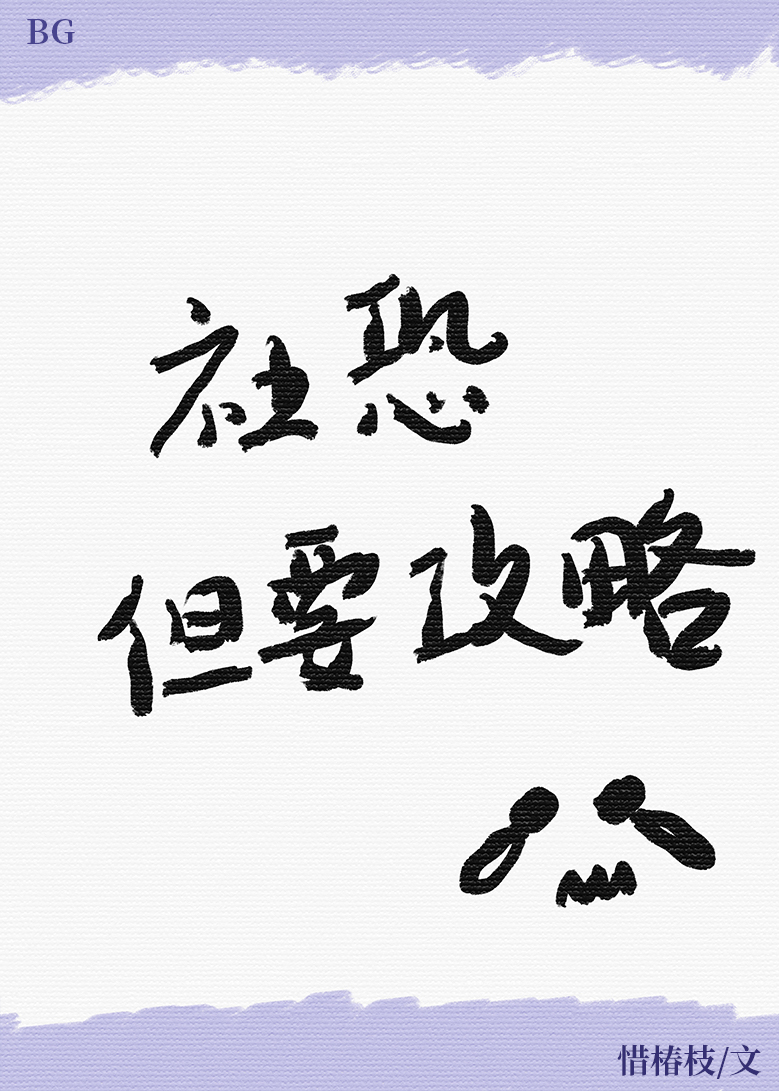 BG
社恐
但要攻略
惜椿枝/文